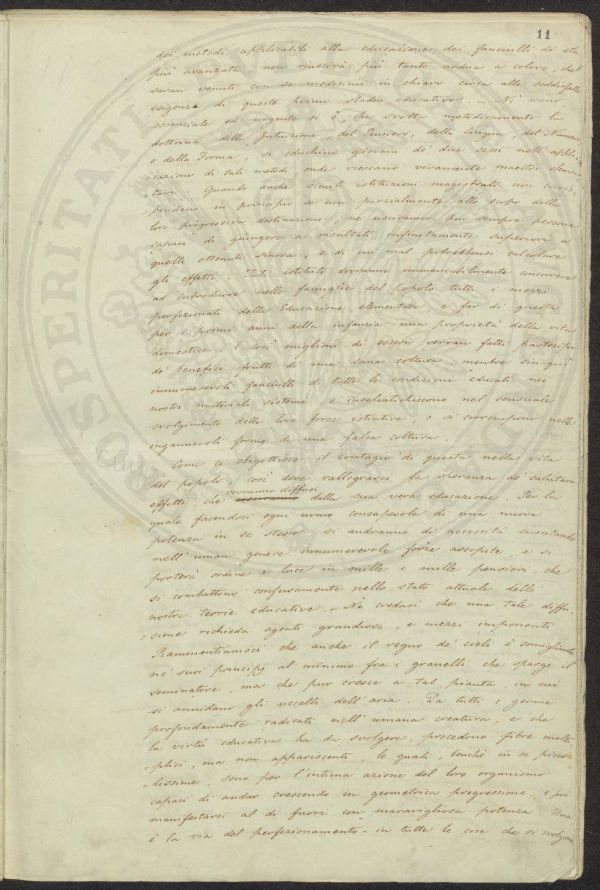 11
dei metodi applicabili alla educazione dei fanciulli di età
più avanzata, non riuscirà più tanto ardua a coloro, che
saran venuti con se medesimi in chiaro circa alle suddisfatte
esigenze di questo primo stadio educativo. – Nè meno
essenziale ed urgente si è, che svolta metodicamente la
dottrina della Intuizione, del Pensiero, della lingua, del Numero
e della Forma, si educhino giovani de' due sessi nell'appli-
-cazione di tali metodi onde riescano veramente maestri elemen-
tari. Quando anche simili istituzioni magistrali non corris-
-pondano in principio se non parzialmente allo scopo della
loro progressiva destinazione, ne usciranno pur sempre persone
capaci di giungere a risultati infinitamente superiori a
quelli ottenuti sinora, e di cui mal potrebbonsi calcolare
gli effetti. Tali istituti dovranno immancabilmente concorrere
ad introdurre nelle famiglie del popolo tutti i mezzi
perfezionati della Educazione elementare e far di questa
per i primi anni della infanzia una proprietà della vita
domestica. E così miglioni di esseri verran fatti partecipi
de' benefici frutti di una sana coltura, mentre sin quì
innumerevoli fanciulli di tutte le condizioni educati nei
nostri materiali sistemi o insalvatichiscono nel sensuale
svolgimento delle loro forze istintive, o si corrompono nelle
ingannevoli forme di una falsa coltura.
Come ci sbigottisce il contagio di questa nella vita
del popolo, così deve rallegrarci la speranza de' salutari
verranno diffusi
effetti che dalla sua vera educazione. Per la
quale facendosi ogni uomo consapevole di una nuova
potenza in se stesso si andranno di necessità suscitando
nell'uman genere innumerevoli forze assopite, e si
porterà ordine e luce in mille e mille pensieri, che
si combattono confusamente nello stato attuale delle
nostre teorie educative. – Nè credasi che una tale diffu
-sione richieda agenti grandiosi, e mezzi imponenti
Rammentiamoci che anche il regno de' cieli è somigliante
ne' suoi principj al minimo fra i granelli che sparge il
seminatore, ma che pur cresce a tal pianta, in cui
si annidano gli uccelli dell'aria. Da tutti i germi
profondamente radicati nell'umana creatura, e che
la virtù educativa ha da svolgere, procedono fibre molte
-plici, ma non appariscenti, le quali, benchè in se picco
-lissime, sono per l'intima azione del loro organismo
capaci di andar crescendo in geometrica progressione, e poi
manifestarsi al di fuori con maravigliosa potenza. Una
è la via del perfezionamento in tutte le cose che si svolgono